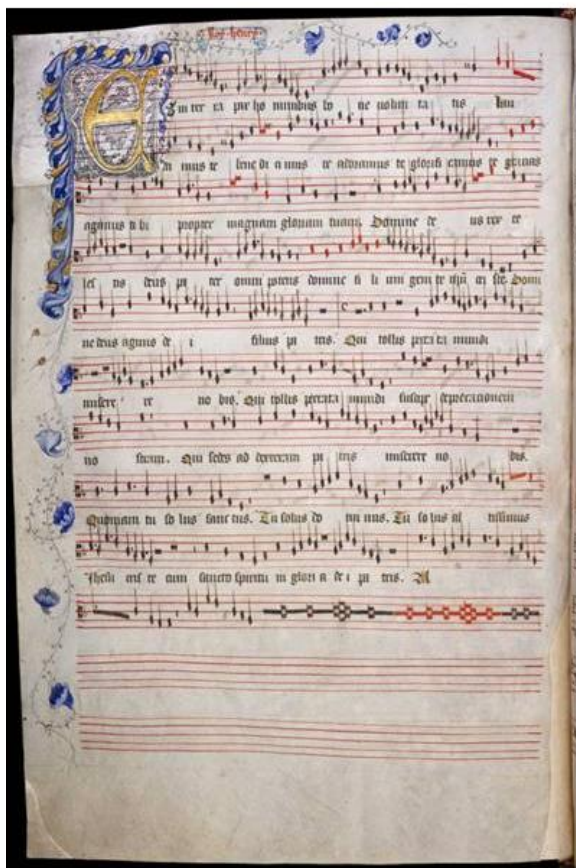 Roy henry
Et in ter ra pax ho minibus bo ne volun ta tis lau
da mus te bene di cimus te adoramus te glorifi camus te gracias
agimus ti bi propter magnam gloriam tuam. Domine de us rex ce
les tis deus pa ter omni potens domine fi li uni geni te ihu cri ste. Domi
ne deus agnus de i filius pa tris. Qui tollis peccata mundi
misere re no bis. Qui tollis peccata mundi suscipe deprecacionem
no stram. Qui sedes ad dexteram pa tris miserere no bis.
Quoniam tu so lus sanc tus. Tu solus do mi nus. Tu so lus al tissimus
Ihesu cris te cum sancto spiritu in glori a de i pa tris. A